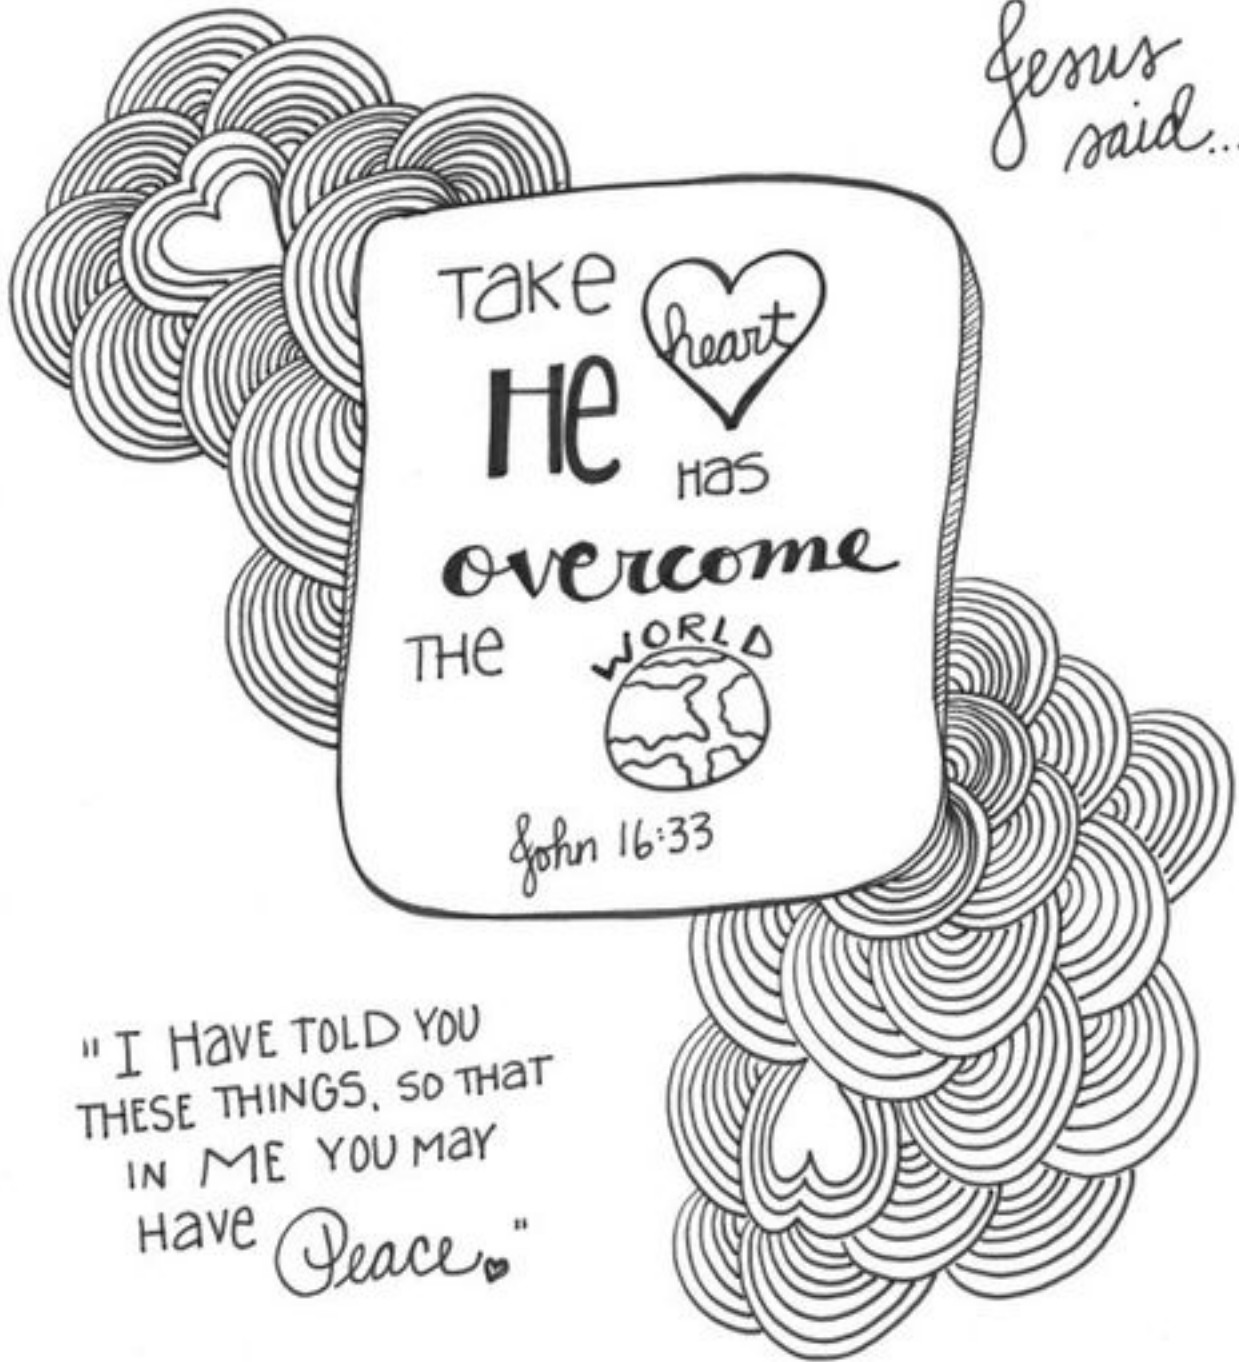 Jesus
said...
Take heart
He Has
overcome
THe WORLD
John 16:33
"I HaVE TOLD YOU
THESE THINGS, SO THaT
IN ME YOU MaY
Have Peace."